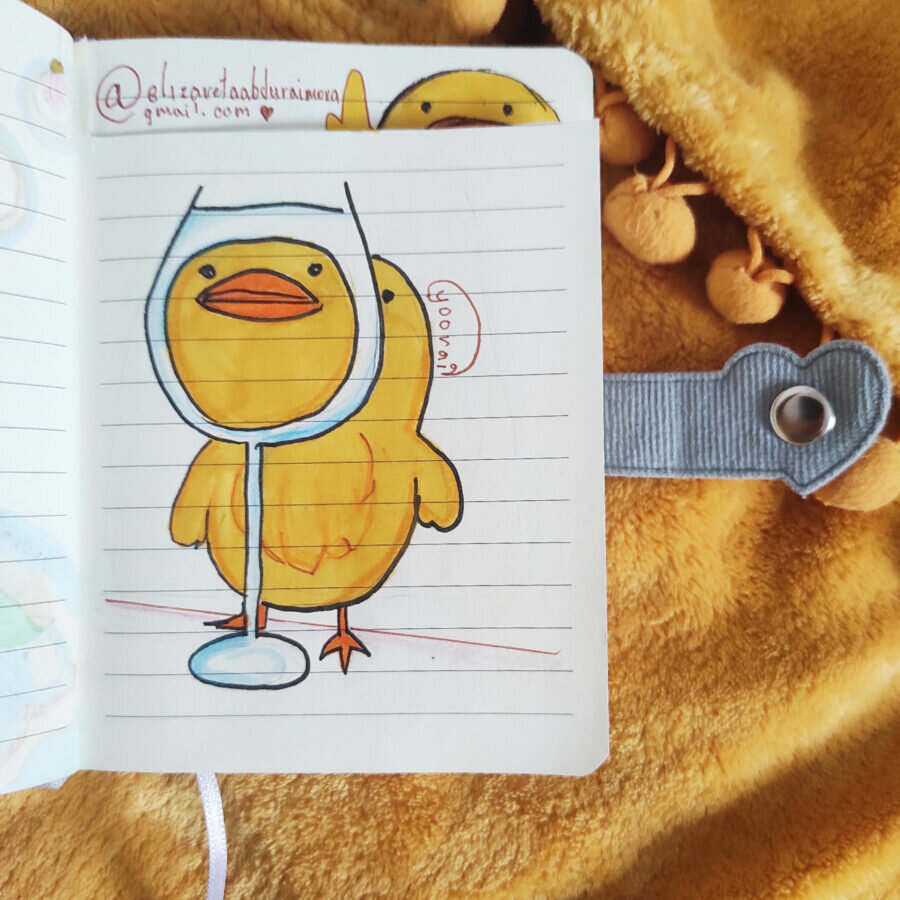 @elizavetaabduraimova
gmail.com ♥